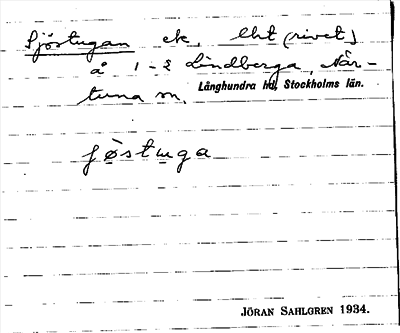 Sjöstugan ek, lht (rivet)
å 1-2 Lindberga, När-
tuna sn, Långhundra hd, Stockholms län.
ʃöstuga
JÖRAN SAHLGREN 1934.